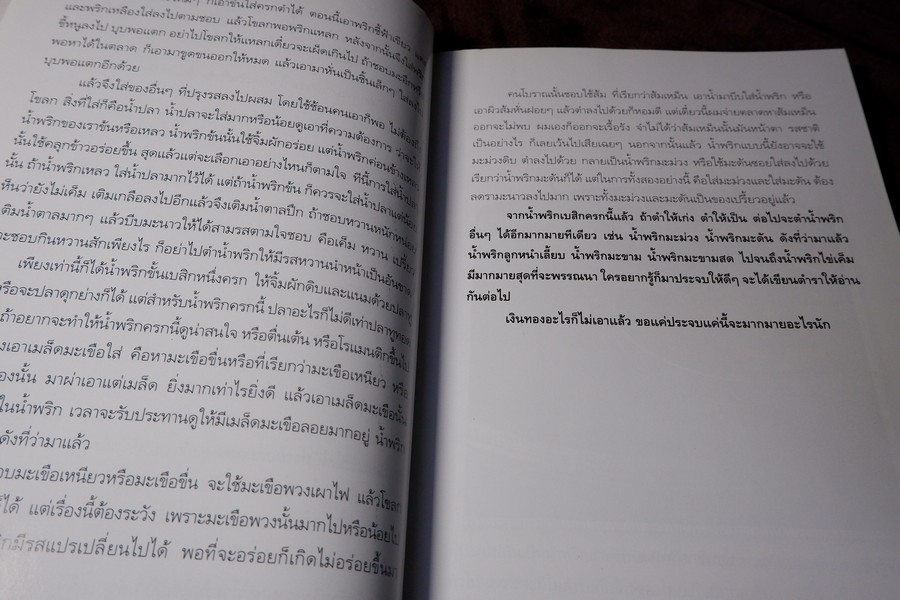 ก็เอามาใส่ครกตำได้ ตอนนี้เอาพริกขี้ฟ้าเขียว
และพริกเหลืองใส่ลงไปตามชอบ แล้วโขลกพอพริกแหลก หลังจากนั้นจึงใส่
ขี้หนูลงไป บุบพอแตก อย่าไปโขลกให้แหลกเดี๋ยวจะเผ็ดเกินไป ถ้าชอบมะอึก
พอหาได้ในตลาด ก็เอามาขูดขนออกให้หมด แล้วเอามาหั่นเป็นชิ้นเล็กๆ ใส่ลงไป
บุบพอแตกอีกด้วย
แล้วจึงใส่ของอื่นๆ ที่ปรุงรสลงไปผสม โดยใช้ช้อนคนเอาก็พอ ไม่ต้อง
โขลก สิ่งที่ใส่ก็คือน้ำปลา น้ำปลาจะใส่มากหรือน้อยดูเอาที่ความต้องการ ว่าจะให้
น้ำพริกของเราข้นหรือเหลว น้ำพริกข้นนั้นใช้จิ้มผักอร่อย แต่น้ำพริกค่อนข้างเหลว
นั้นใช้คลุกข้าวอร่อยขึ้น สุดแล้วแต่จะเลือกเอาอย่างไหนก็ตามใจ ทีนี้การใส่น้ำปลา
นั้น ถ้าน้ำพริกเหลว ใส่น้ำปลามากไว้ได้ แต่ถ้าน้ำพริกข้น ก็ควรจะใส่น้ำปลาแต่น้อย
เห็นว่ายังไม่เค็ม เติมเกลือลงไปอีกแล้วจึงเติมน้ำตาลปีก ถ้าชอบหวานหนักหน่อย
เติมน้ำตาลมากๆ แล้วบีบมะนาวให้ได้สามรสตามใจชอบ คือเค็ม หวาน เปรี้ยว
จะชอบกินหวานสักเพียงไร ก็อย่าไปตำน้ำพริกให้มีรสหวานนำหน้าเป็นอันขาด
เพียงเท่านี้ก็ได้น้ำพริกขั้นเบสิกหนึ่งครก ให้จิ้มผักดิบและแนมด้วยปลาทู
หรือจะปลาดุกย่างก็ได้ แต่สำหรับน้ำพริกครกนี้ ปลาอะไรก็ไม่ดีเท่าปลาทูทอด
ถ้าอยากจะทำให้น้ำพริกครกนี้ดูน่าสนใจ หรือตื่นเต้น หรือโรแมนติกขึ้นไป
เอาเมล็ดมะเขือใส่ คือหามะเขือขื่นหรือที่เรียกว่ามะเขือเหนียว หรือ
องนั้น มาผ่าเอาแต่เมล็ด ยิ่งมากเท่าไรยิ่งดี แล้วเอาเมล็ดมะเขือนั้น
ในน้ำพริก เวลาจะรับประทานดูให้มีเมล็ดมะเขือลอยมากอยู่ น้ำพริก
ดังที่ว่ามาแล้ว
อบมะเขือเหนียวหรือมะเขือขื่น จะใช้มะเขือพวงเผาไฟ แล้วโขลก
ได้ แต่เรื่องนี้ต้องระวัง เพราะมะเขือพวงนั้นมากไปหรือน้อยไป
มีรสแปรเปลี่ยนไปได้ พอที่จะอร่อยก็เกิดไม่อร่อยขึ้นมา
คนโบราณนั้นชอบใช้ส้ม ที่เรียกว่าส้มเหม็น เอาน้ำมาบีบใส่น้ำพริก หรือ
เอาผิวส้มหั่นฝอยๆ แล้วตำลงไปด้วยก็หอมดี แต่เดี๋ยวนี้ผมจ่ายตลาดหาส้มเหม็น
ออกจะไม่พบ ผมเองก็ออกจะเรื้อรัง จำไม่ได้ว่าส้มเหม็นนั้นมันหน้าตา รสชาติ
เป็นอย่างไร ก็เลยเว้นไปเสียเฉยๆ นอกจากนั้นแล้ว น้ำพริกแบบนี้ยังอาจจะใช้
มะม่วงดิบ ตำลงไปด้วย กลายเป็นน้ำพริกมะม่วง หรือใช้มะดันซอยใส่ลงไปด้วย
เรียกว่าน้ำพริกมะดันก็ได้ แต่ในการทั้งสองอย่างนี้ คือใส่มะม่วงและใส่มะดัน ต้อง
ลดรามะนาวลงไปมาก เพราะทั้งมะม่วงและมะดันเป็นของเปรี้ยวอยู่แล้ว
จากน้ำพริกเบสิกครกนี้แล้ว ถ้าตำให้เก่ง ตำให้เป็น ต่อไปจะตำน้ำพริก
อื่นๆ ได้อีกมากมายทีเดียว เช่น น้ำพริกมะม่วง น้ำพริกมะดัน ดังที่ว่ามาแล้ว
น้ำพริกลูกหนำเลี้ยบ น้ำพริกมะขาม น้ำพริกมะขามสด ไปจนถึงน้ำพริกไข่เค็ม
มีมากมายสุดที่จะพรรณนา ใครอยากรู้ก็มาประจบให้ดีๆ จะได้เขียนตำราให้อ่าน
กันต่อไป
เงินทองอะไรก็ไม่เอาแล้ว ขอแค่ประจบแค่นี้จะมากมายอะไรนัก